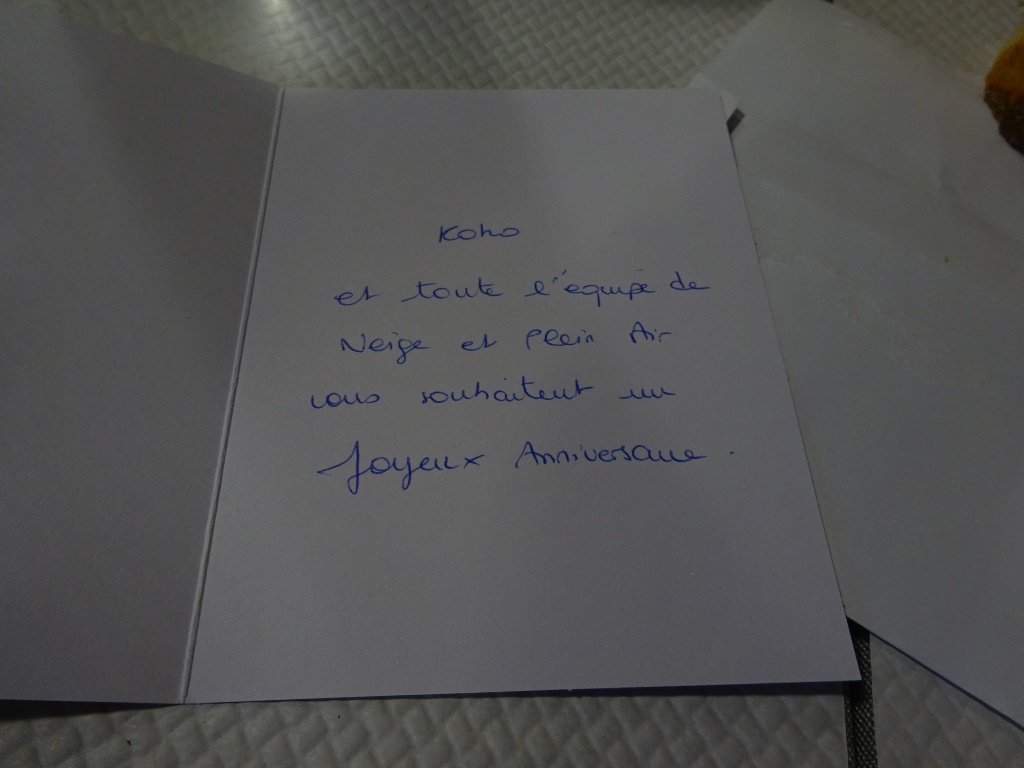 Koho
et toute l'équipe de
Neige et Plein Air
vous souhaitent un
Joyeux Anniversaire.